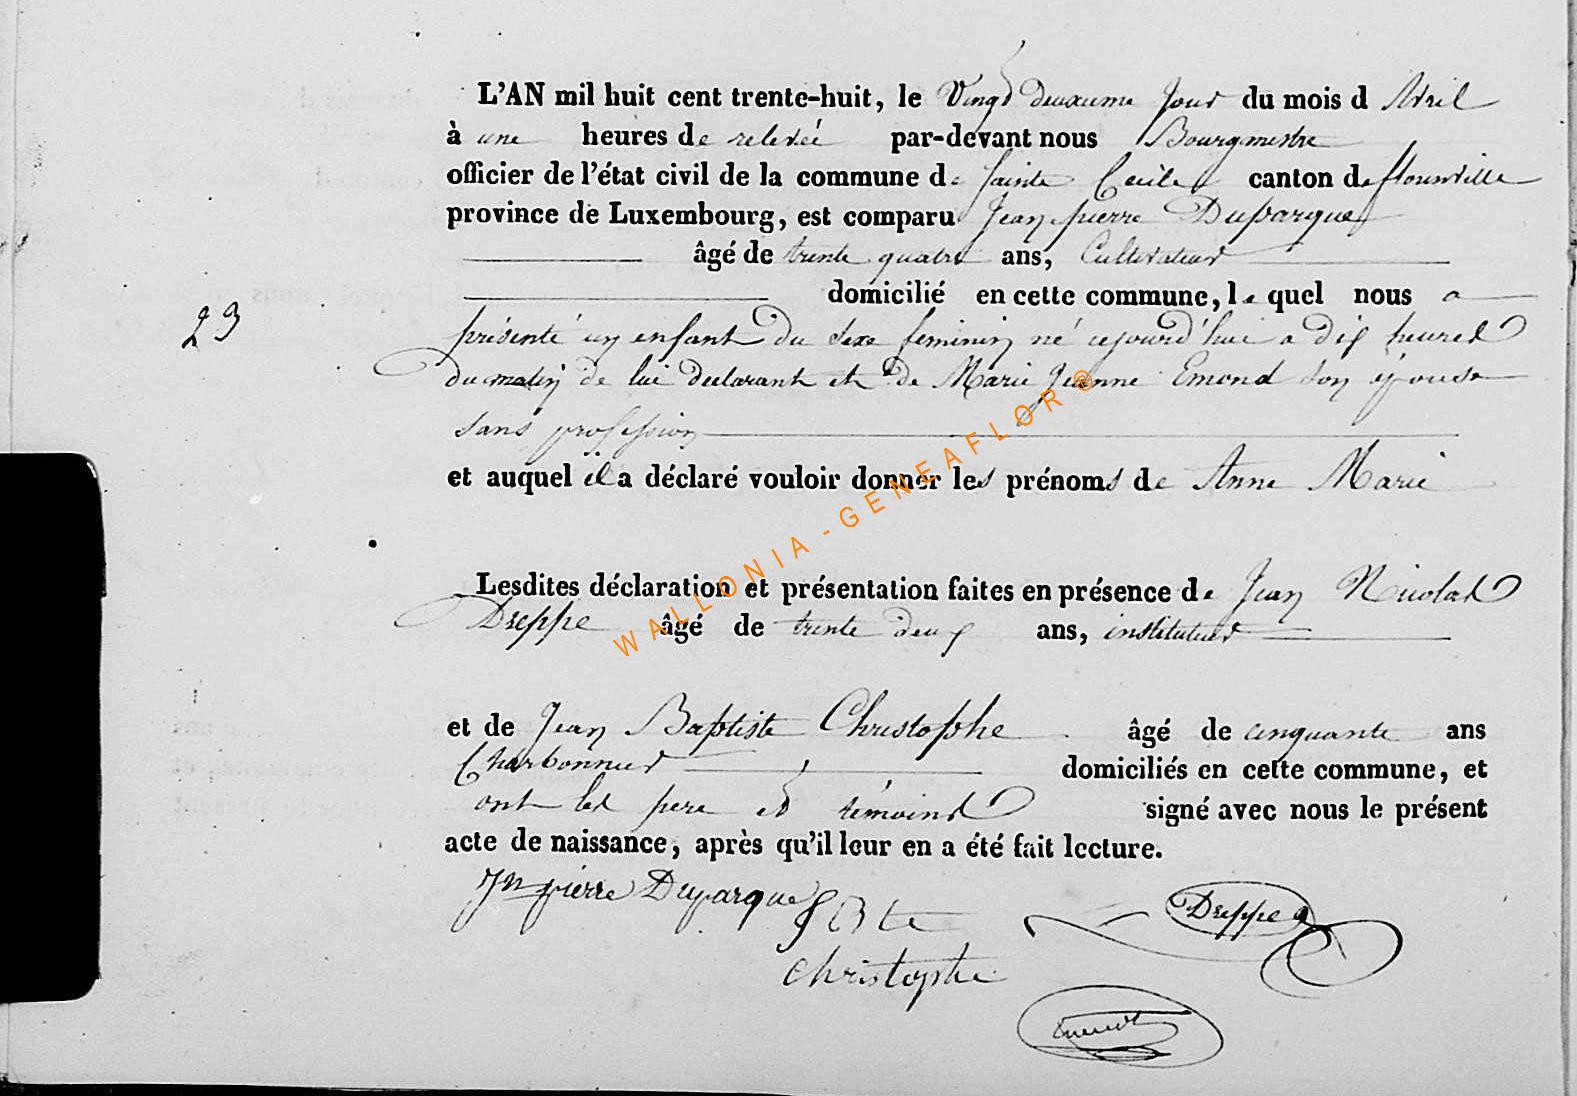 L'AN mil huit cent trente-huit, le Vingt deuxieme Jour du mois d Avril
à une heures de relevée par-devant nous Bourgmestre
officier de l'état civil de la commune de Sainte Cecile canton de florenville
province de Luxembourg, est comparu Jean pierre Duparque
âgé de trente quatre ans, Cultivateur
domicilié en cette commune, le quel nous a
présenté un enfant du sexe feminin né cejourd'hui a dix heures
du matin de lui declarant et de Marie Jeanne Emond son épouse
sans profession
et auquel il a déclaré vouloir donner les prénoms de Anne Marie
23
Lesdites déclaration et présentation faites en présence de Jean Nicolas
Dreppe âgé de trente deux ans, instituteur
et de Jean Baptiste Christophe âgé de cinquante ans
Charbonnier domiciliés en cette commune, et
ont les pere et témoins signé avec nous le présent
acte de naissance, après qu'il leur en a été fait lecture.
Jn pierre Duparque
J Bte
Dreppe
christophe
WALLONIA - GENEAFLOR ®